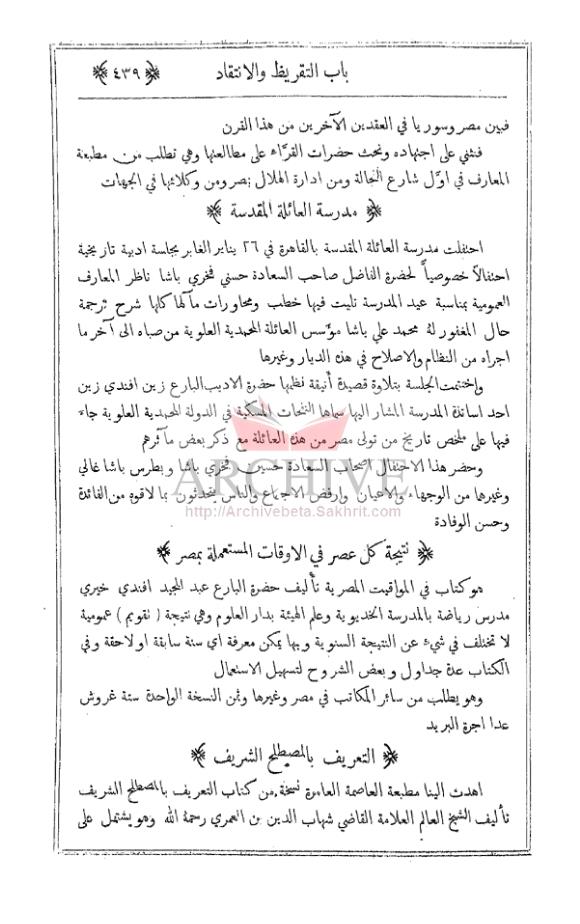 باب التقريظ والانتقاد ﴿٤٣٩﴾
فبين مصر وسوريا في العقدين الآخرين من هذا القرن
فنثني على اجتهاده ونحث حضرات القرّاء على مطالعتها وهي تطلب من مطبعة
المعارف في اوّل شارع الفجالة ومن ادارة الهلال بمصر ومن وكلائها في الجهات
﴿ مدرسة العائلة المقدسة ﴾
احتفلت مدرسة العائلة المقدسة بالقاهرة في ٢٦ يناير الغابر بجلسة ادبية تاريخية
احتفالاً خصوصياً لحضرة الفاضل صاحب السعادة حسني فخري باشا ناظر المعارف
العمومية بمناسبة عيد المدرسة تليت فيها خطب ومحاورات مآلها كلها شرح ترجمة
حال المغفور له محمد علي باشا مؤسس العائلة المحمدية العلوية من صباه الى آخر ما
اجراه من النظام والاصلاح في هذه الديار وغيرها
واختتمت الجلسة بتلاوة قصيدة أنيقة نظمها حضرة الاديب البارع زين افندي زين
احد اساتذة المدرسة المشار اليها سماها النفحات المسكية في الدولة المحمدية العلوية جاء
فيها على ملخص تاريخ من تولى مصر من هذه العائلة مع ذكر بعض مآثرهم
وحضر هذا الاحتفال اصحاب السعادة حسين فخري باشا وبطرس باشا غالي
وغيرها من الوجهاء والاعيان وارفض الاجتماع والناس يتحدثون بما لاقوه من الفائدة
وحسن الوفادة
ARCHIVE
http://Archivebeta.Sakhrit.com
﴿ نتيجة كل عصر في الاوقات المستعملة بمصر ﴾
هو كتاب في المواقيت المصرية تأليف حضرة البارع عبد المجيد افندي خيري
مدرس رياضة بالمدرسة الخديوية وعلم الهيئة بدار العلوم وهي نتيجة ( تقويم ) عمومية
لا تختلف في شيء عن النتيجة السنوية وبها يمكن معرفة اي سنة سابقة او لاحقة وفي
الكتاب عدة جداول وبعض الشروح لتسهيل الاستعمال
وهو يطلب من سائر المكاتب في مصر وغيرها وثمن النسخة الواحدة ستة غروش
عدا اجرة البريد
﴿ التعريف بالمصطلح الشريف ﴾
اهدت الينا مطبعة العاصمة العامرة نسخة من كتاب التعريف بالمصطلح الشريف
تأليف الشيخ العالم العلامة القاضي شهاب الدين بن العمري رحمة الله وهو يشتمل على